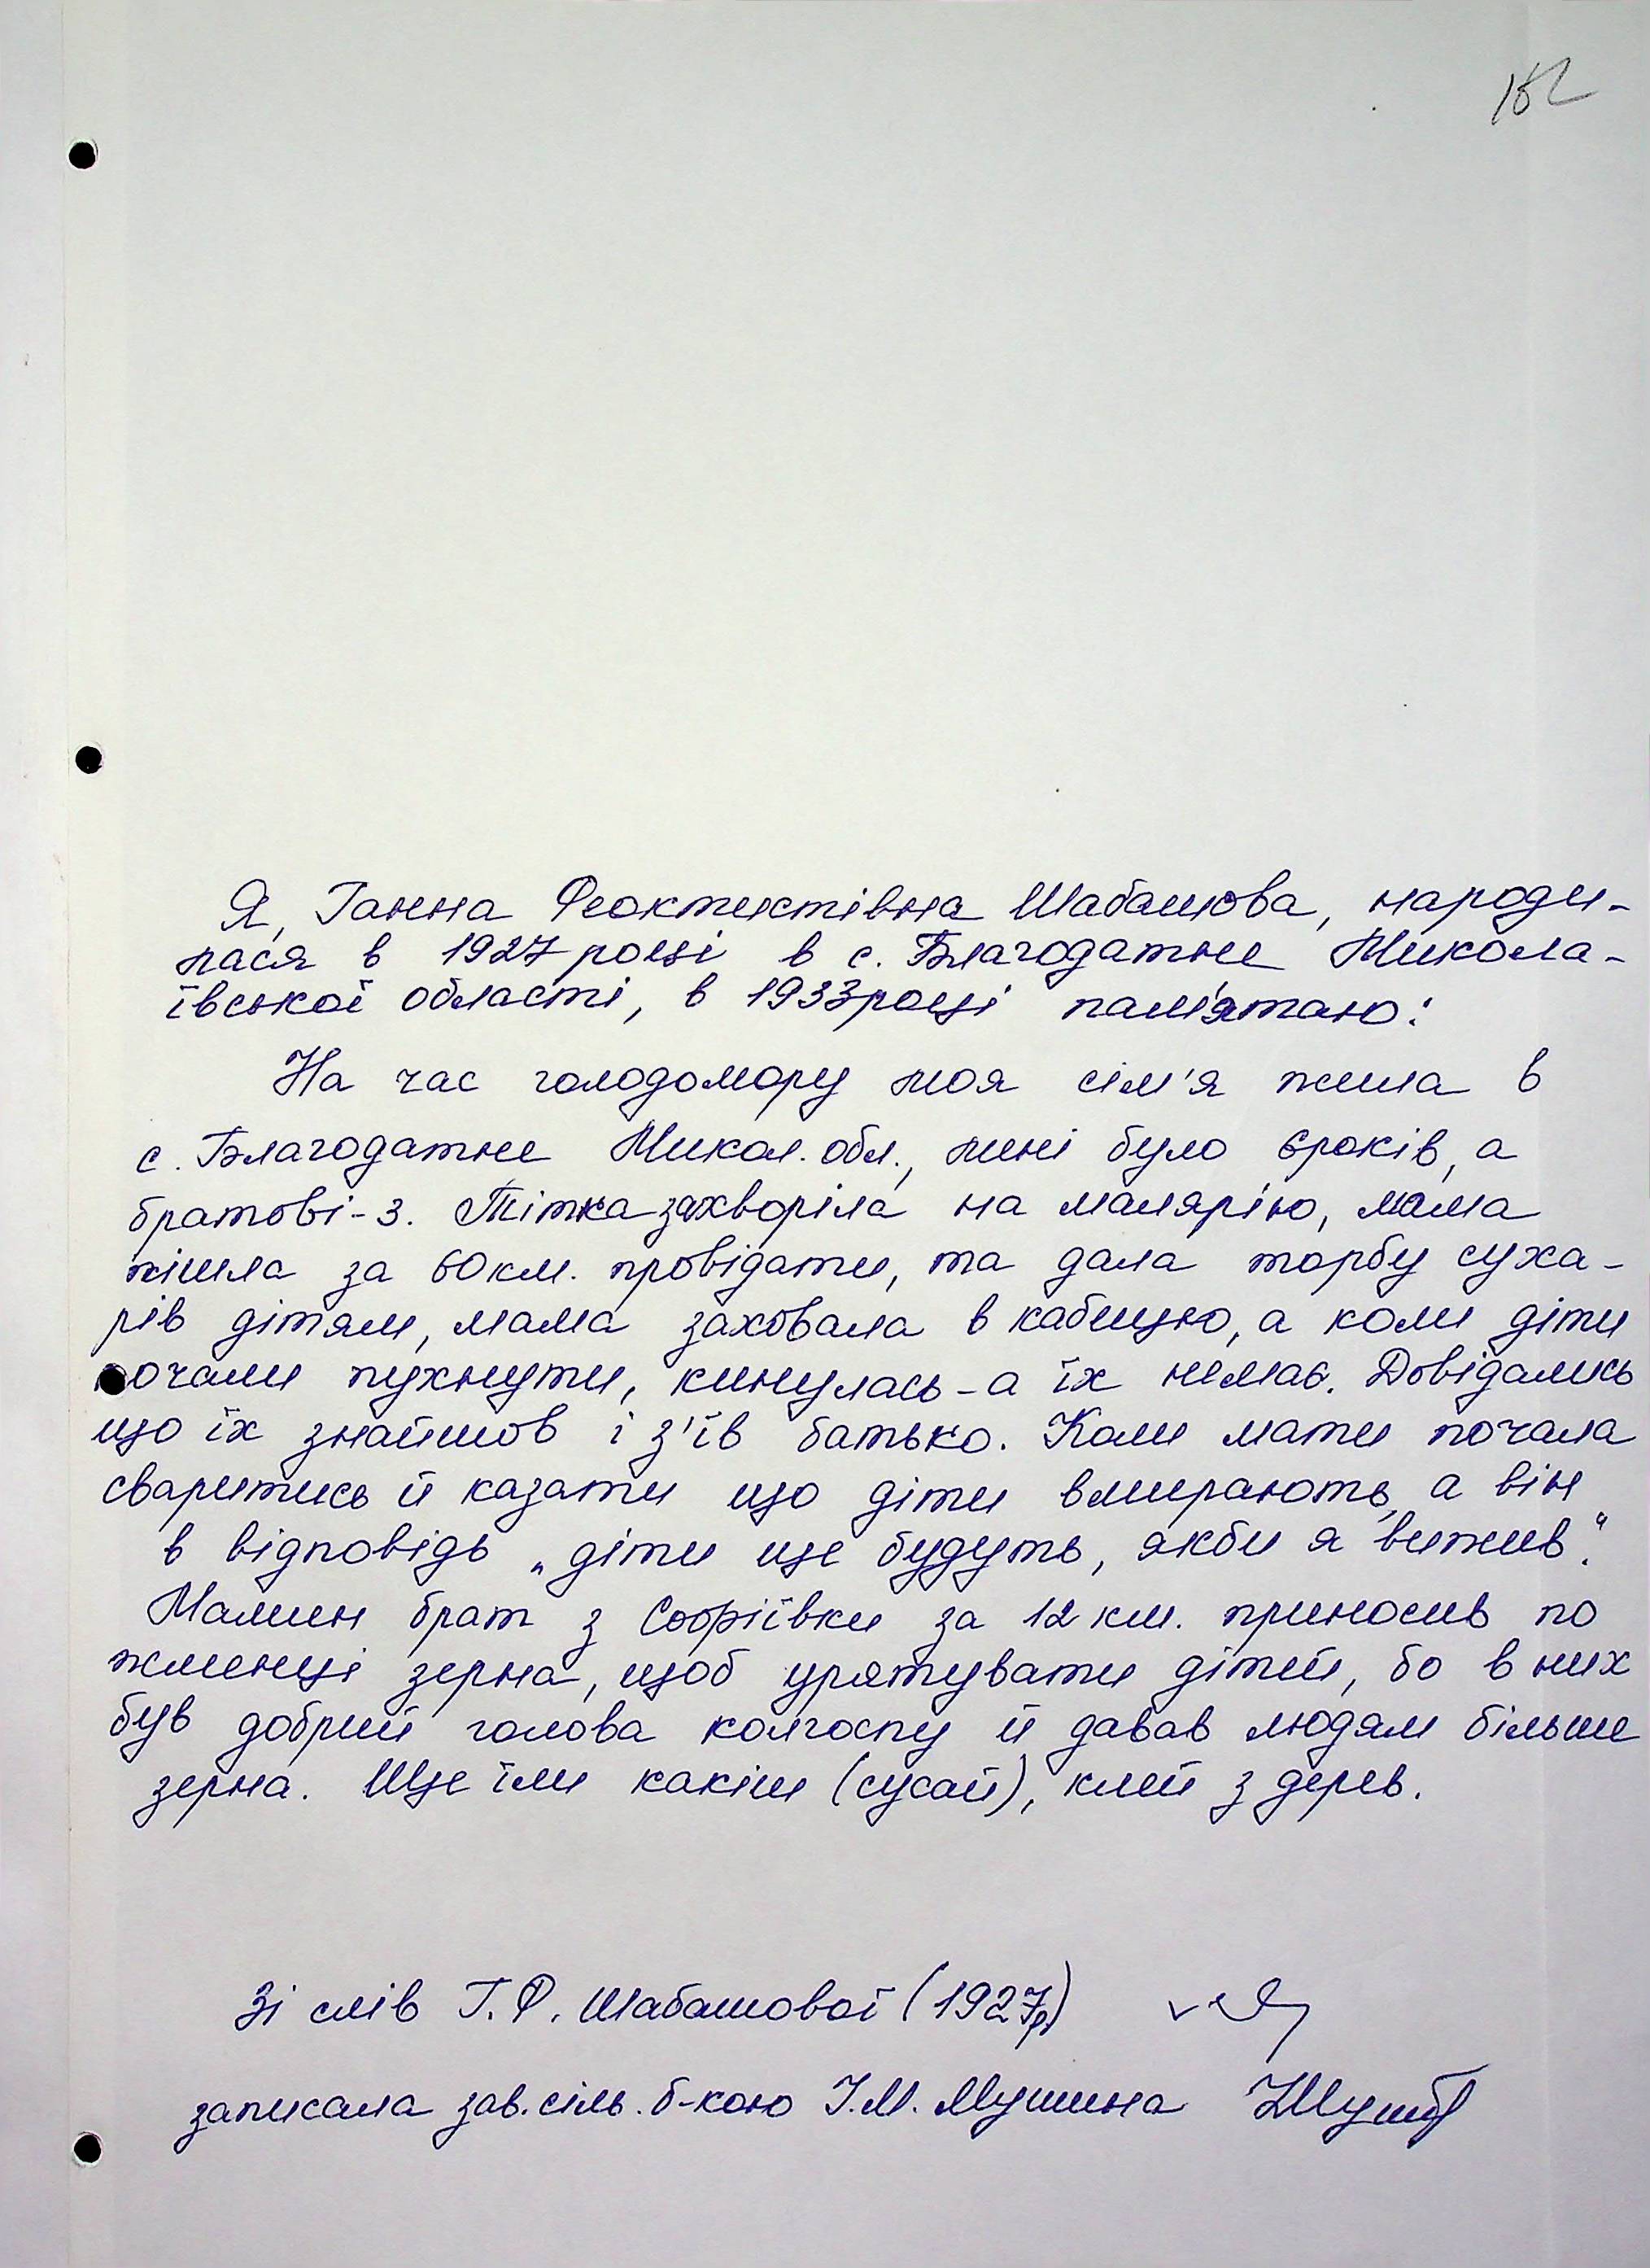 182
Я, Ганна Феоктистівна Шабашова, народи-
лася в 1927 році в с. Благодатне Микола-
ївської області, в 1933 році пам'ятаю:
На час голодомору моя сім'я жила в
с. Благодатне Микол. обл., мені було 6 років, а
братові - 3. Тітка захворіла на малярію, мама
пішла за 60 км. провідати, та дала торбу суха-
рів дітям, мама заховала в кабицю, а коли діти
почали пухнути, кинулась - а їх немає. Довідались
що їх знайшов і з'їв батько. Коли мати почала
сваритись й казати що діти вмирають, а він
в відповідь „діти ще будуть, якби я вижив".
Мамин брат з Софіївки за 12 км. приносив по
жменці зерна, щоб урятувати дітей, бо в них
був добрий голова колгоспу й давав людям більше
зерна. Ще їли какіш (сусай), клей з дерев.
Зі слів Г. Ф. Шабашової (1927р)
записала зав. сіль. б-кою І. М. Мушина